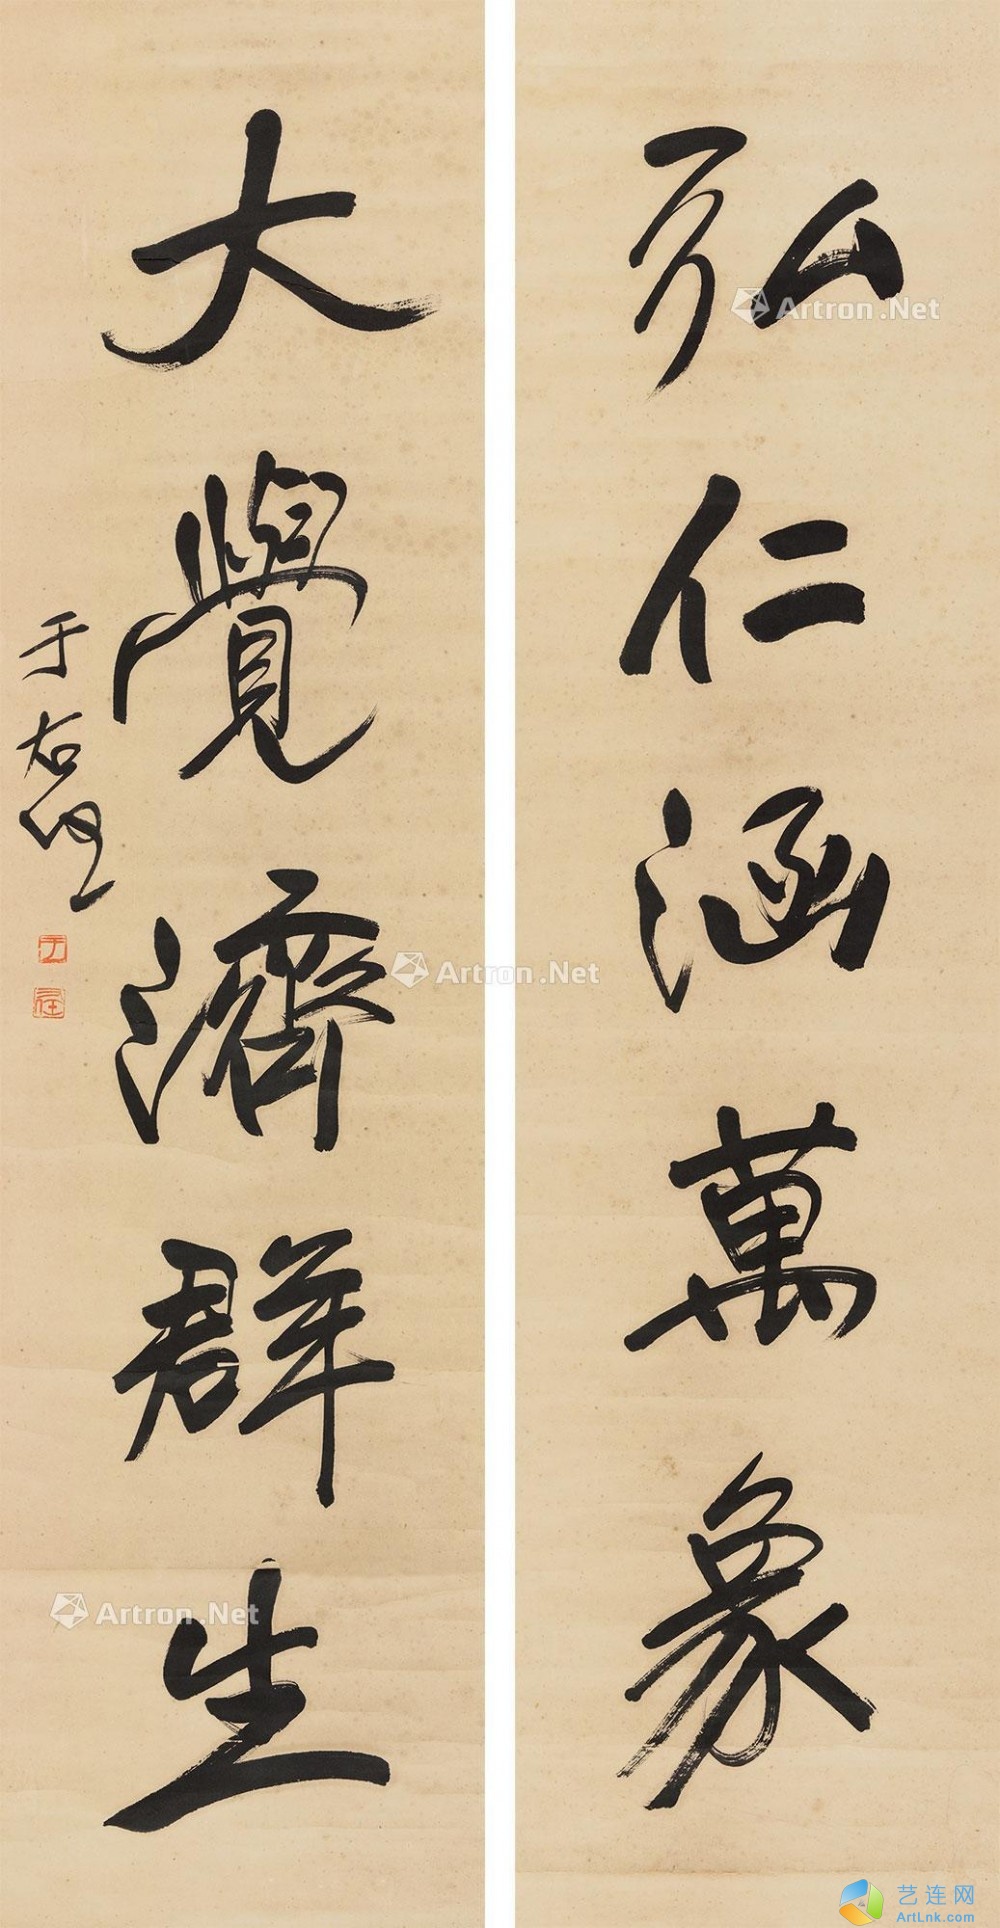 弘仁涵萬象
大覺濟群生
于右任
Artron.Net
Artron.Net
Artron.Net
艺连网
ArtLnk.com